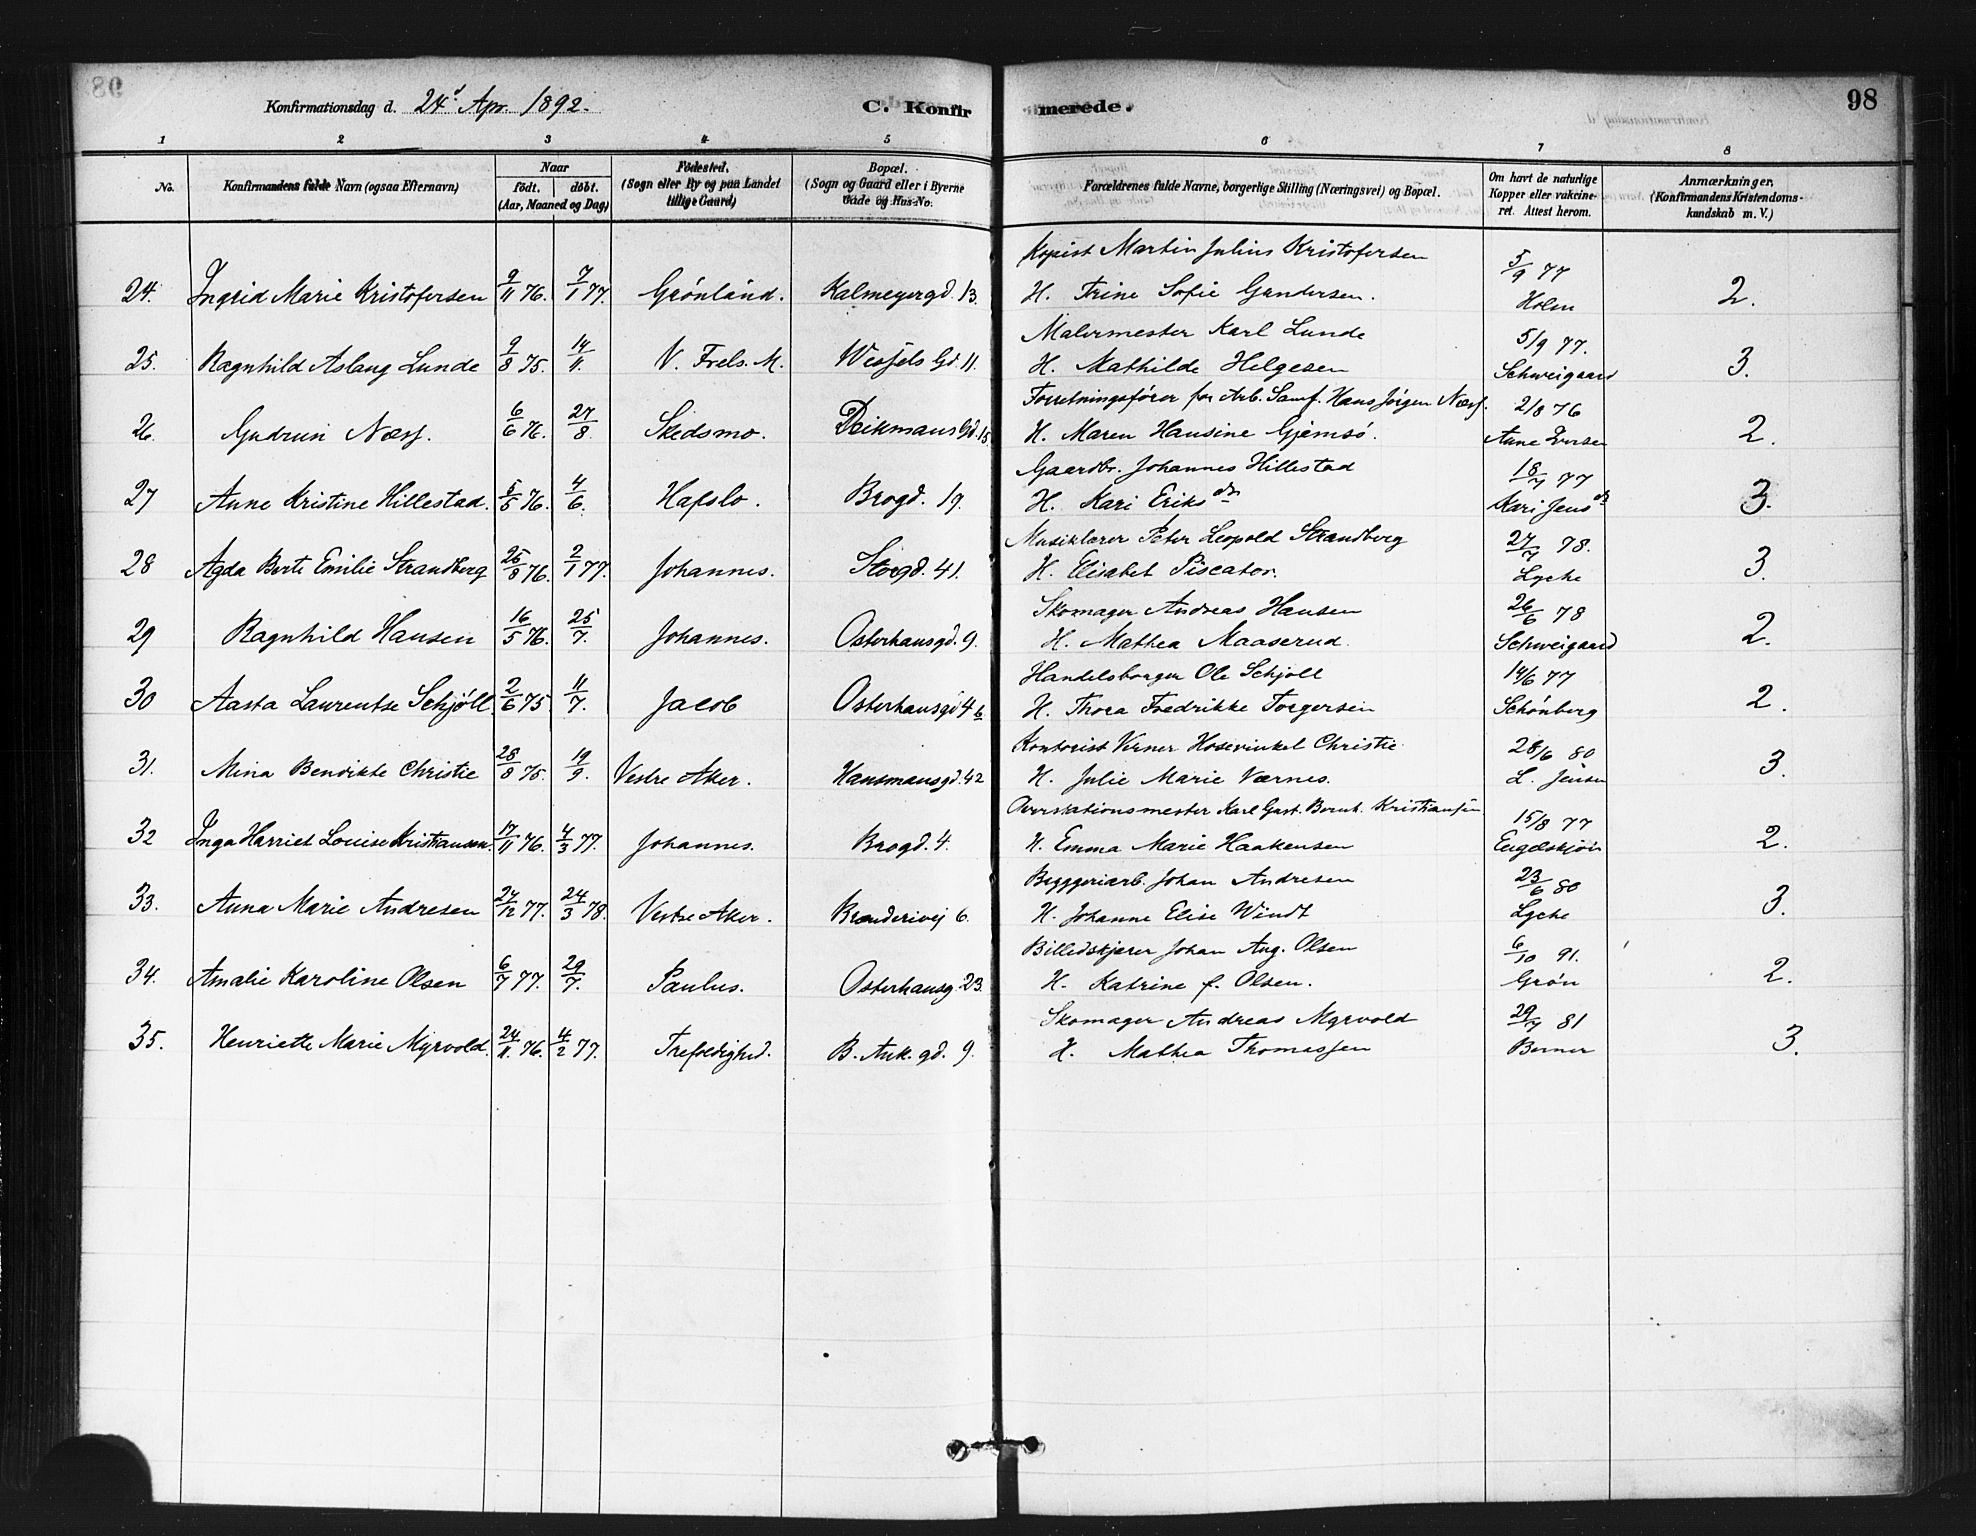 98
Konfirmationsdag d. 24d Apr. 1892.
C. Konfirmerede.
98
1 2 3 4 5 6 7 8
No.
Konfirmandens fulde Navn (ogsaa Efternavn)
Naar
født. døbt.
(Aar, Maaned og Dag)
Fødested.
(Sogn eller By og paa Landet
tillige Gaard)
Bopæl.
(Sogn og Gaard eller i Byerne
Gade og Hus-No.
Forældrenes fulde Navne, borgerlige Stilling (Næringsvei) og Bopæl.
Om havt de naturlige
Kopper eller vakcine-
ret. Attest herom.
Anmærkninger.
(Konfirmandens Kristendoms-
kundskab m. V.)
Kopist Martin Julius Kristofersen 5/9 77
24. Ingrid Marie Kristofersen 9/11 76. 7/1 77. Grønland. Kalmeyergd. 13. H. Trine Sofie Gundersen. Holm 2.
Malermester Karl Lunde 5/9 77.
25. Ragnhild Aslaug Lunde 9/8 75. 14/11. V. Frels. M. Wessels Gd. 11. H. Mathilde Helgesen Schweigaard 3.
Forretningsfører for Arb. Samf. Hans Jørgen Næss. 2/8 76
26. Gudrun Næss. 6/6 76. 27/8. Skedsmo. Deikmans Gd. 15 H. Maren Hansine Gjemsø. Anne Iversen 2.
Gaardbr. Johannes Hillestad 18/7 77
27 Anne Kristine Hillestad. 5/5 76. 4/6. Hafslo. Brogd. 19. H. Kari Eriksdn Kari Jensdn 3.
Musiklærer Peter Leopold Strandberg 27/7 78.
28 Agda Berti Emilie Strandberg 25/8 76. 2/1 77. Johannes. Storgd. 41. H. Elisabet Piscator. Lyche 3.
Skomager Andreas Hansen 26/6 78
29 Ragnhild Hansen 16/5 76. 25/7. Johannes. Osterhausgd. 9. H. Mathea Maaserud. Schweigaard 2.
Handelsborger Ole Schjøll 14/6 77
30 Aasta Laurentse Schjøll. 2/6 75 11/7. Jacob Osterhausgd 4 b. H. Thora Fredrikke Torgersen Schønberg 2.
Kontorist Verner Hosevinkel Christie 28/6 80
31. Mina Bendikte Christie 28/8 75. 19/9. Vestre Aker. Hausmansgd. 42 H. Julie Marie Værnes. L. Jensen 3.
Overstationsmester Karl Gust. Bernh. Kristiansen 15/8 77
32 Inga Harriet Louise Kristiansen. 17/11 76. 4/3 77. Johannes. Brogd. 4. H. Emma Marie Haakensen Engelskjøn 2.
Bryggeriarb. Johan Andresen 23/6 80
33. Anna Marie Andresen 27/12 77. 24/3 78. Vestre Aker. Brænderivej 6. H. Johanne Elise Windt Lyche 3.
Billedskjærer Johan Aug. Olsen 6/10 91.
34. Amalie Karoline Olsen 6/7 77. 29/7. Paulus. Osterhausg. 23. H. Katrine f. Olsen. Grøn 2.
Skomager Andreas Myrvold 29/7 81
35. Henriette Marie Myrvold. 24/11 76. 4/2 77. Trefoldighed. B. Ank. gd. 9. H. Mathea Thomassen Berner 3.